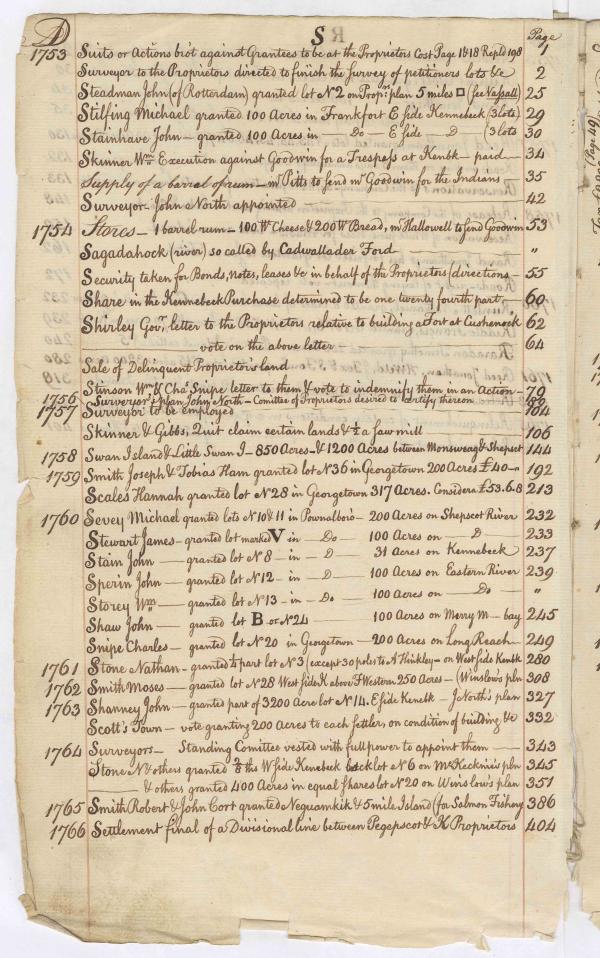 D S Page
1753 Suits or Actions bro't against Grantees to be at the Proprietors Cost Page 1&18 Repld 198 1
Surveyor to the Proprietors directed to finish the Survey of petitioners lots &c 2
Steadman John (of Rotterdam) granted lot No 2 on Propr.s plan 5 miles □ (see Nassau) 25
Stilfing Michael granted 100 Acres in Frankfort E side Kennebeck (3 lots) 29
Stainhave John — granted 100 Acres in — Do — E side — D — (3 lots 30
Skinner Wm Execution against Goodwin for a Trespass at Kenbk — paid — 34
Supply of a barrel of rum — mr Pitts to send mr Goodwin for the Indians — 35
Surveyor John North appointed — 42
1754 Stores — 1 barrel rum — 100 Wt Cheese & 200 Wt Bread, mr Hallowell to send Goodwin 53
Sagadahock (river) so called by Cadwallader Ford — "
Security taken for Bonds, Notes, leases &c in behalf of the Proprietors (directions — 55
Share in the Kennebeck Purchase determined to be one twenty fourth part, — 60
Shirley Govr. letter to the Proprietors relative to building a Fort at Cushenock 62
— vote on the above letter — 64
Sale of Delinquent Proprietors land
Stinson Wm & Chas Snipe letter to them & vote to indemnify them in an Action — 79
1756 Surveyor's plan John North — Comittee of Proprietors desired to certify thereon
1757 Surveyor to be employed 104
Skinner & Gibbs, Quit claim certain lands & ½ a saw mill 106
1758 Swan Island & Little Swan I — 850 Acres — & 1200 Acres between Monsweag & Shepscot 144
1759 Smith Joseph & Tobias Ham granted lot No 36 in Georgetown 200 Acres £40 — 192
Scales Hannah granted lot No 28 in Georgetown 317 Acres. Considera £53.6.8 213
1760 Sevey Michael granted lots No 10 & 11 in Pownalboro — 200 Acres on Shepscot River 232
Stewart James — granted lot marked V in — Do — 100 Acres on — D — 233
Stain John — granted lot No 8 — in — D — 31 Acres on Kennebeck 237
Sperin John — granted lot No 12 — in — D — 100 Acres on Eastern River 239
Storey Wm — granted lot No 13 — in — Do — 100 Acres on — Do — "
Shaw John — granted lot B or No 24 — 100 Acres on Merry M — bay 245
Snipe Charles — granted lot No 20 in Georgetown — 200 Acres on Long Reach — 249
1761 Stone Nathan — granted ½ part lot No 3 (except 30 poles to A Hinkley — on West side Kenbk 280
1762 Smith Moses — granted lot No 28 West side K above Ft Western 250 Acres — (Winslow's pln 308
1763 Shanney John — granted part of 3200 Acre lot No 14. E side Kenebk — J North's plan 327
Scott's Town — vote granting 200 Acres to each settler, on condition of building &c 332
1764 Surveyors — Standing Comittee vested with full power to appoint them — 343
Stone N & others granted ths W side Kenebeck back lot No 6 on McKecknie's pln 345
— & others granted 400 Acres in equal shares lot No 20 on Winslow's plan 351
1765 Smith Robert & John Cort granted Neguamkik & 5 mile Island (for Salmon Fishery 386
1766 Settlement final of a Divisional line between Pegepscot & K Proprietors 404
(Page 49)